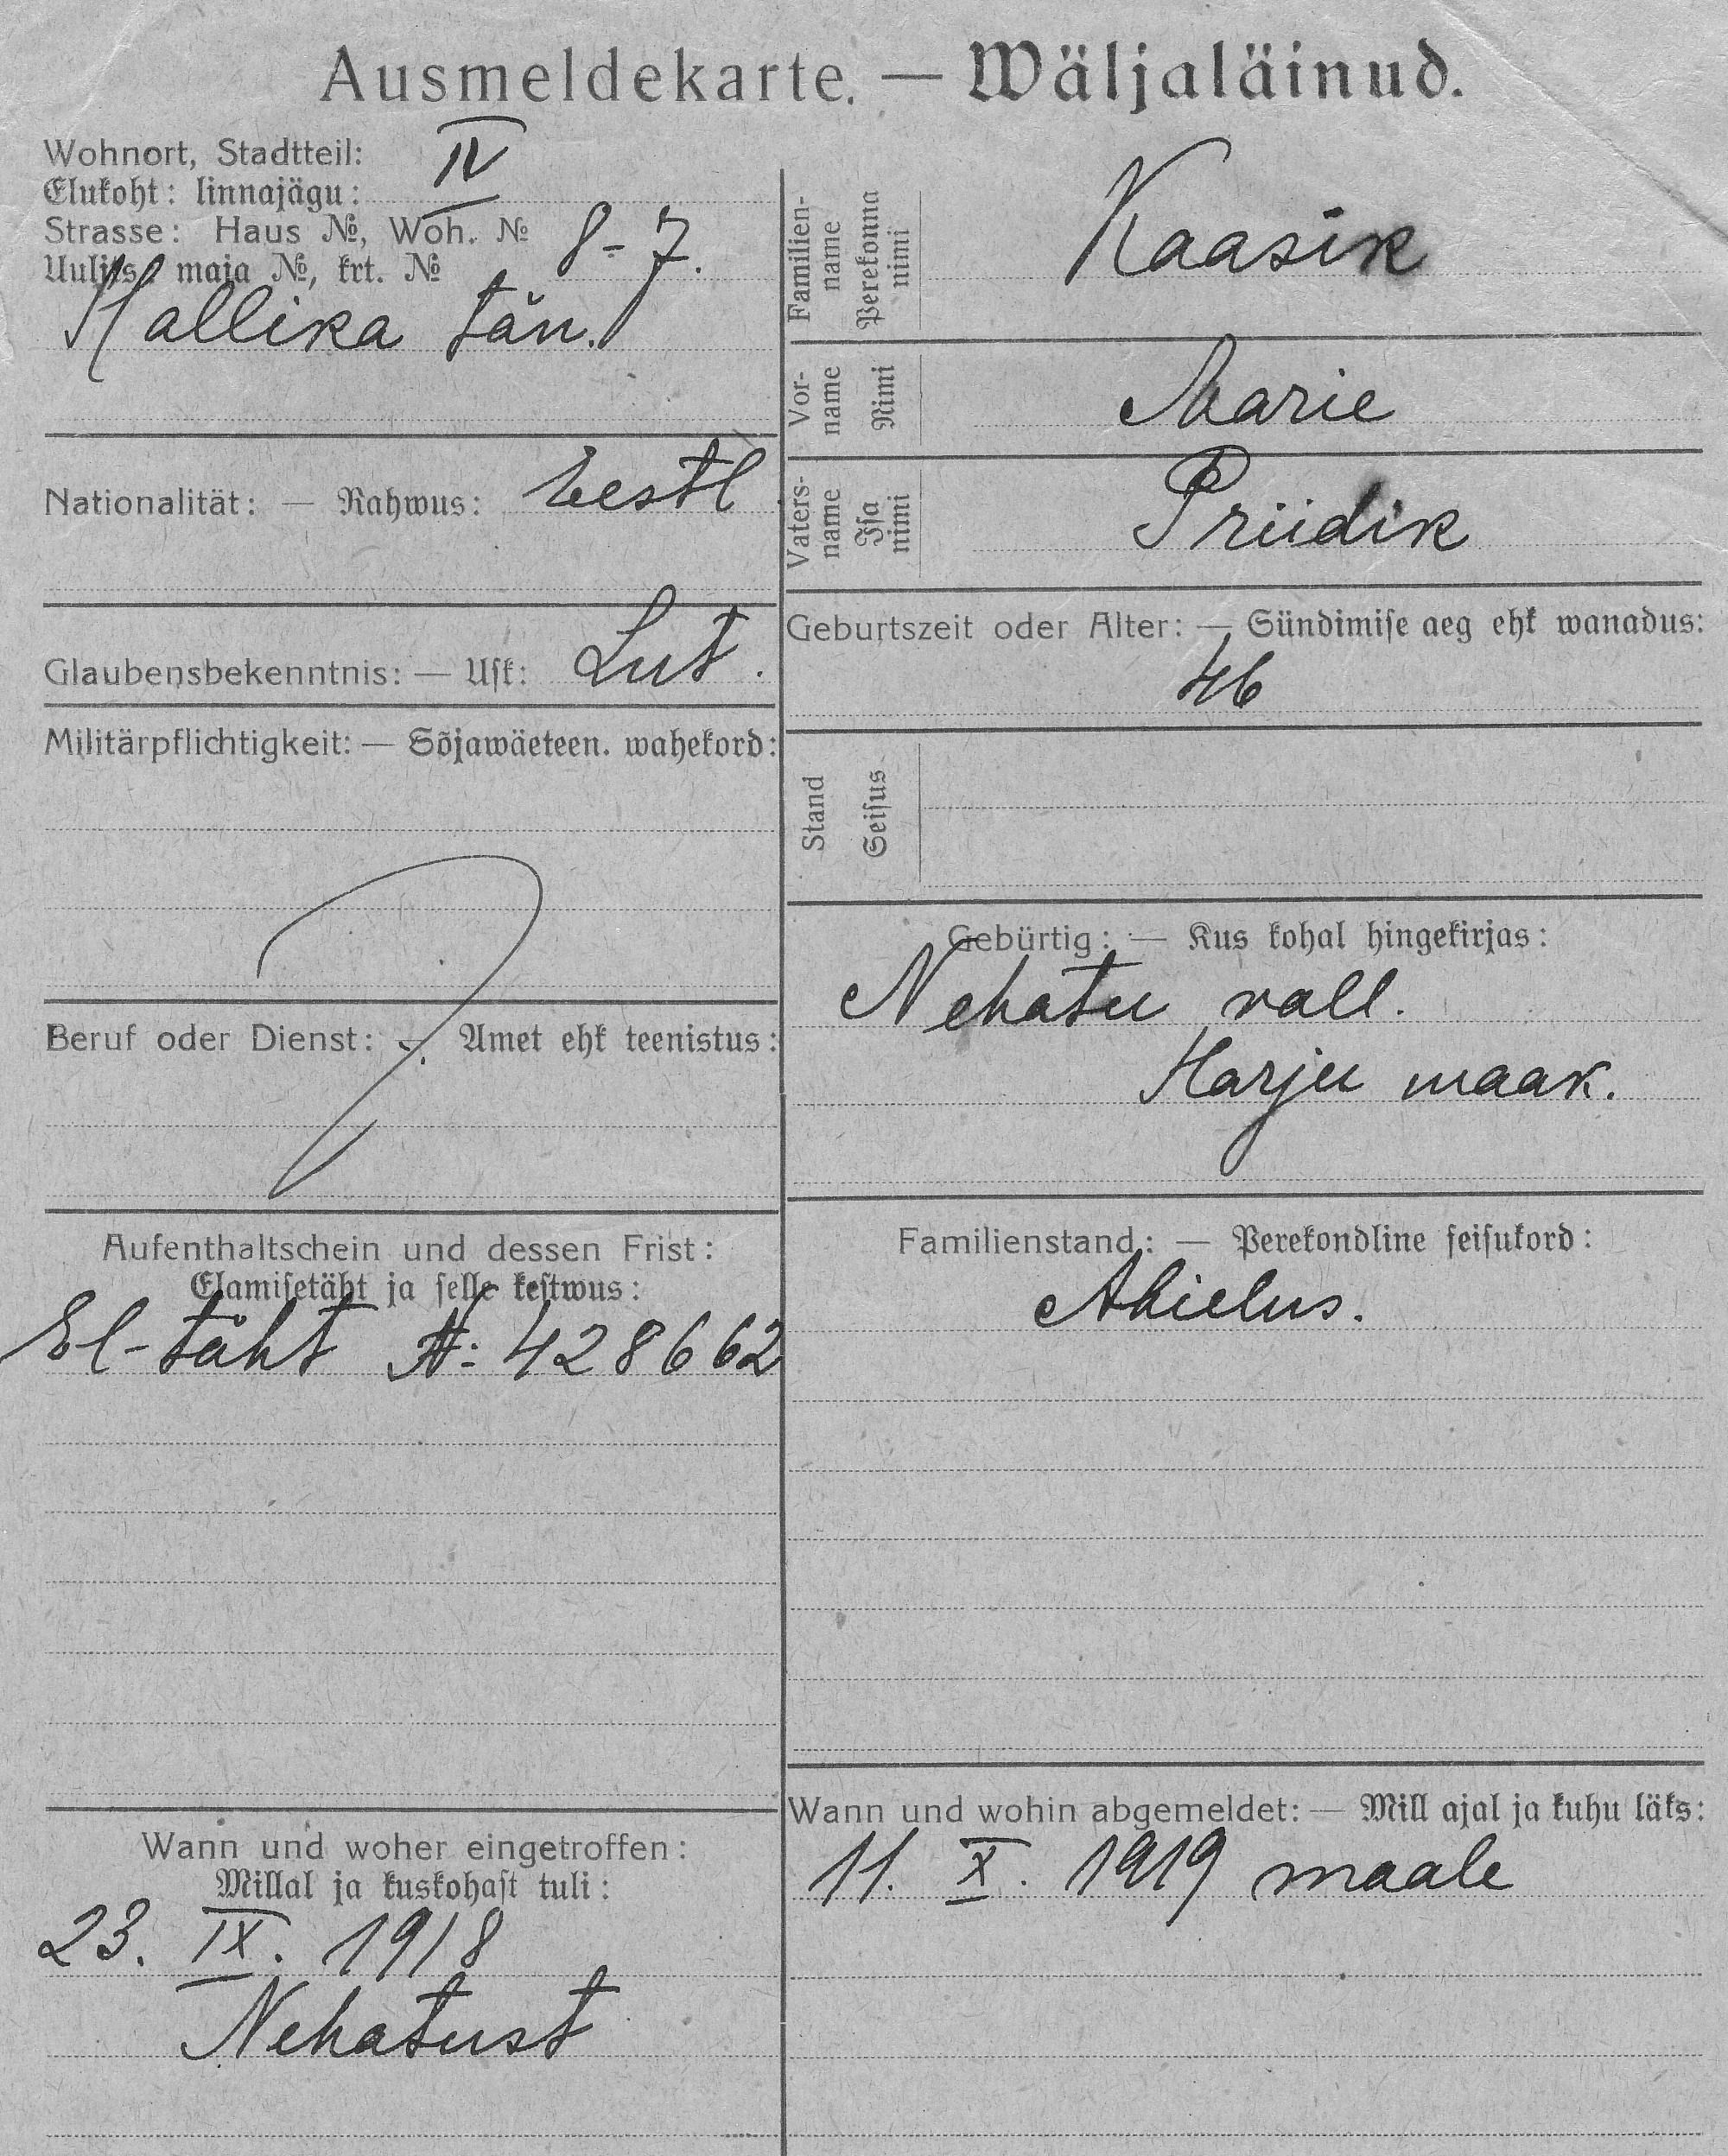 Ausmeldekarte. — Wäljaläinud.
Wohnort, Stadtteil: IV
Elukoht: linnajägu:
Strasse: Haus №, Woh. № 8-7.
Uulits, maja №, krt. №
Kallika tän.
Nationalität: — Rahwus: Eestl
Glaubensbekenntnis: — Usk: Lut.
Militärpflichtigkeit: — Sõjawäeteen. wahekord:
Beruf oder Dienst: — Amet ehk teenistus:
Aufenthaltschein und dessen Frist:
Elamisetäht ja selle kestwus:
El-täht A: 428662
Wann und woher eingetroffen:
Millal ja kuskohast tuli:
23. IX. 1918
Nehatust
Familien-
name
Perekonna
nimi
Kaasik
Vor-
name
Nimi
Marie
Vaters-
name
Isa
nimi
Priidik
Geburtszeit oder Alter: — Sündimise aeg ehk wanadus:
46
Stand
Seisus
Gebürtig: — Kus kohal hingekirjas:
Nehatu vall.
Harju maak.
Familienstand: — Perekondline seisukord:
Abielus.
Wann und wohin abgemeldet: — Mill ajal ja kuhu läks:
11. X. 1919 maale